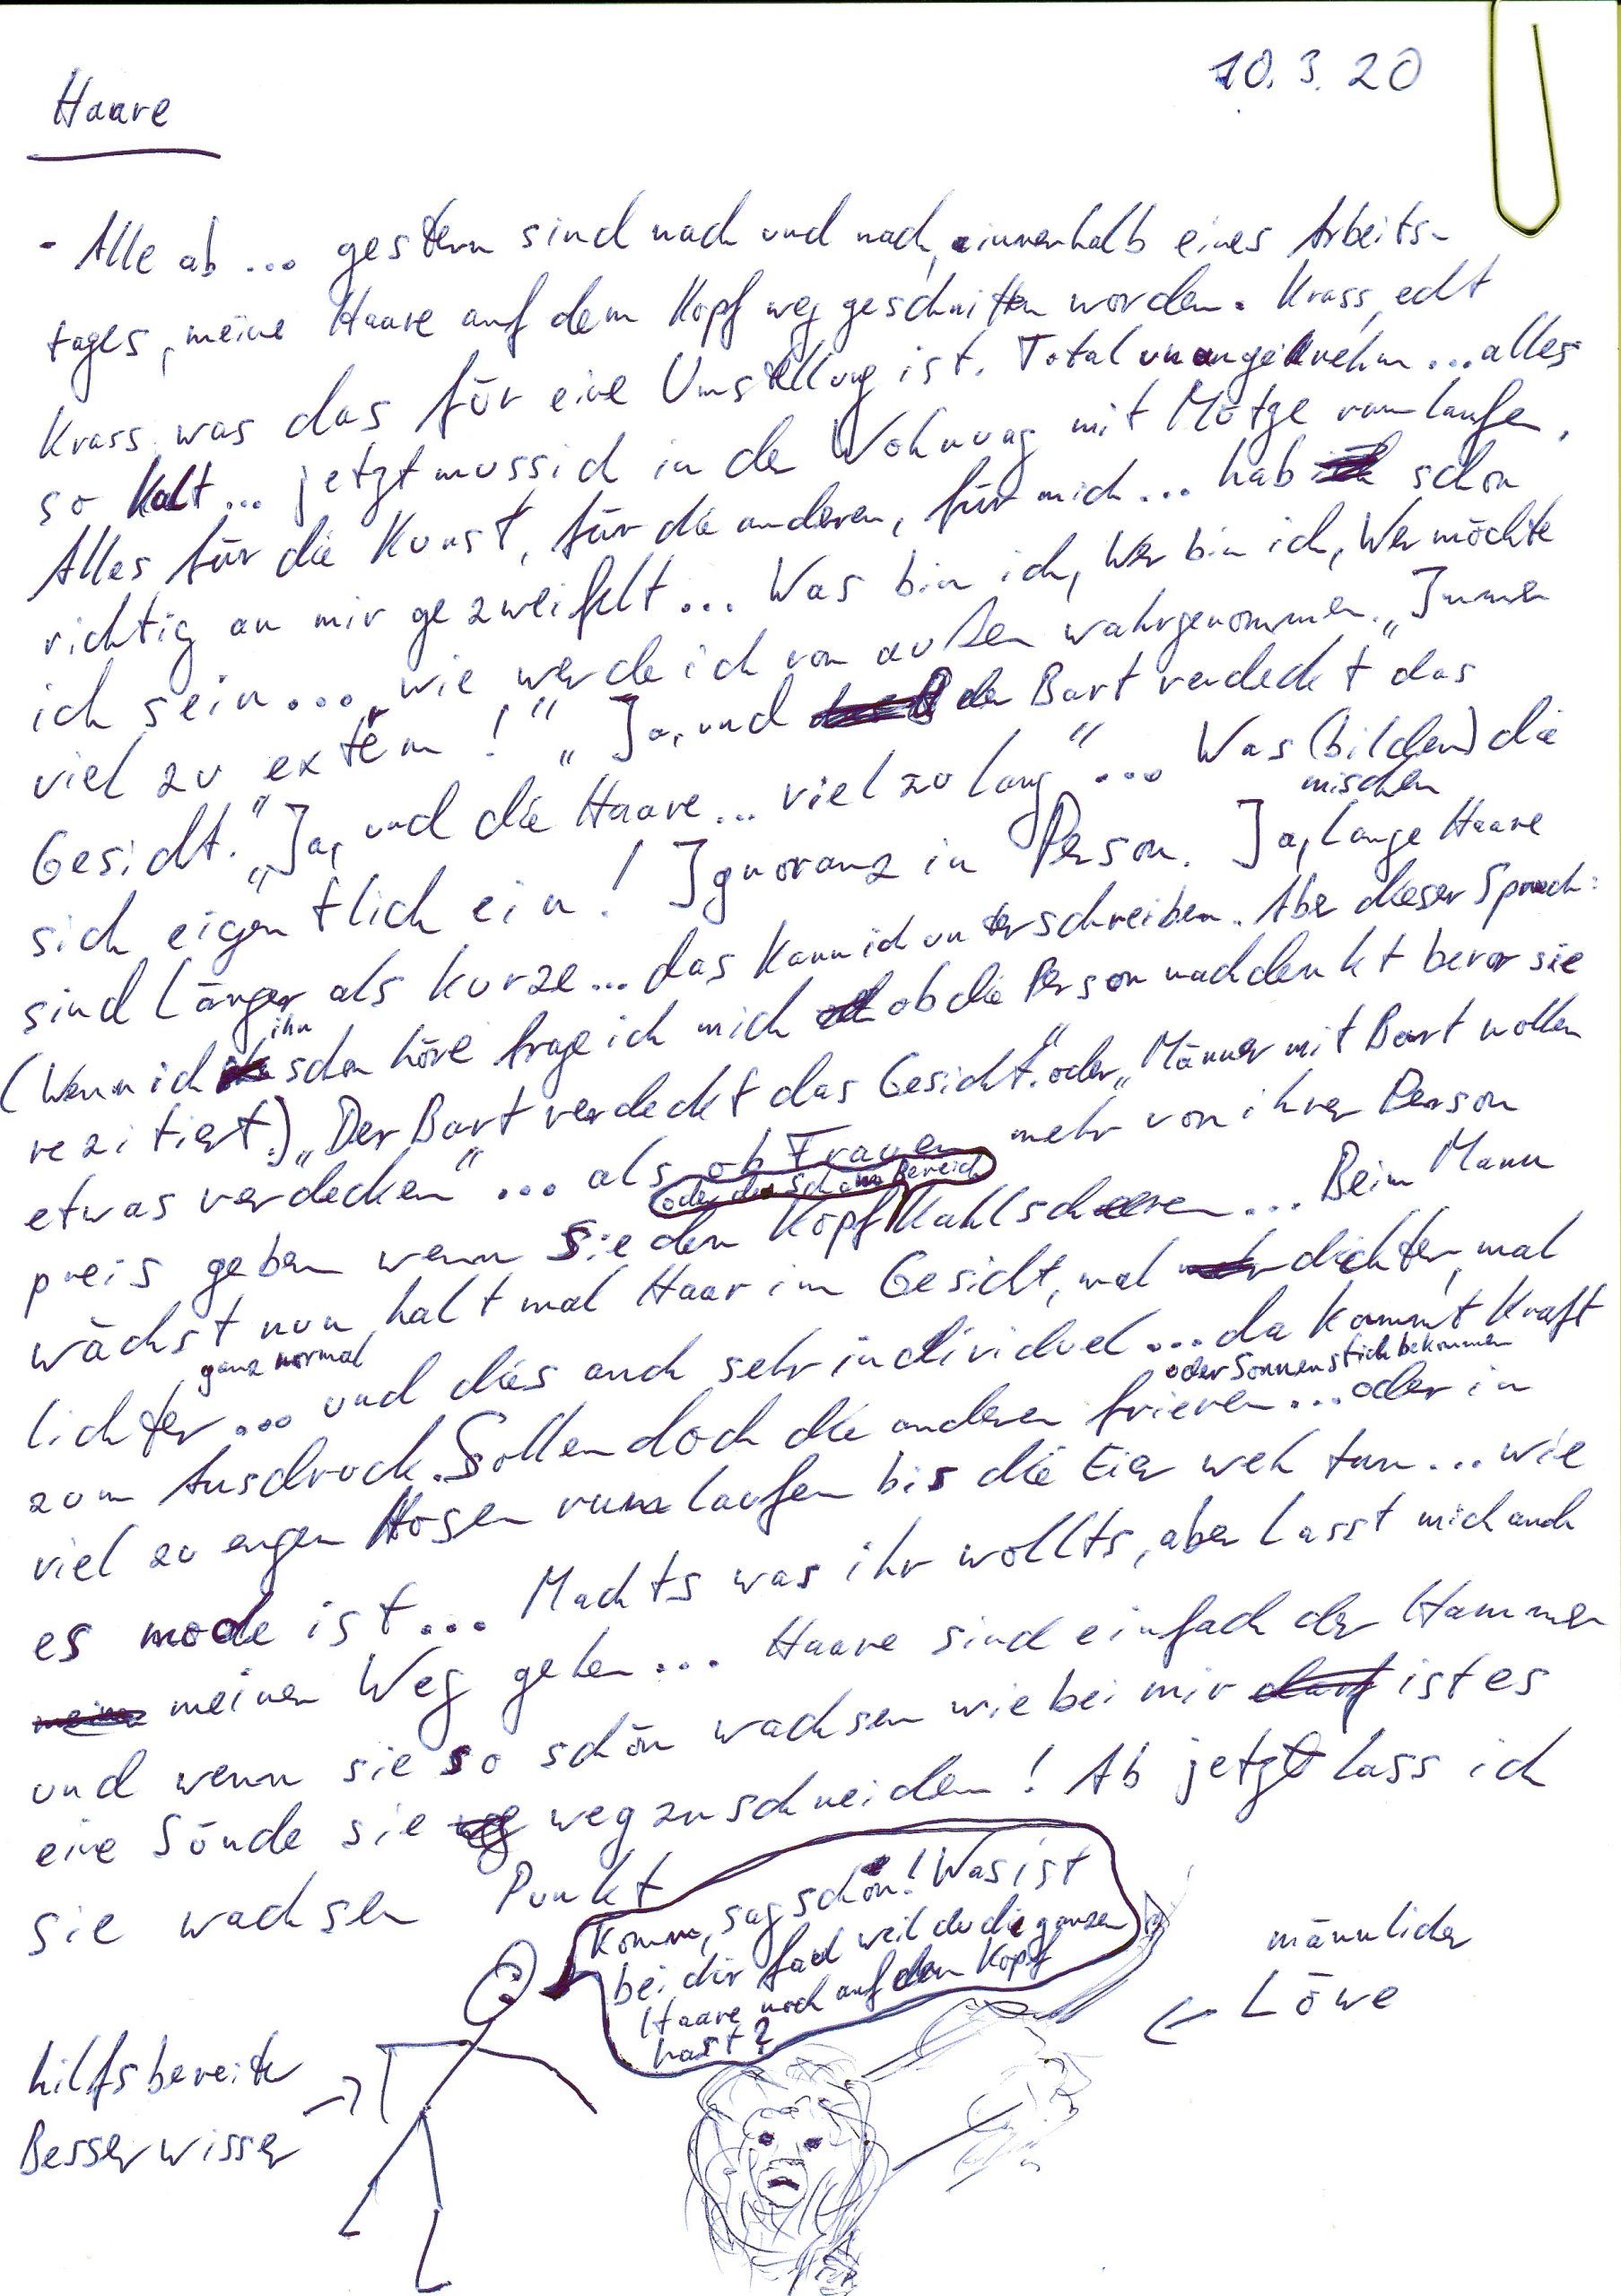 10.3.20
Haare
- Alle ab ... gestern sind nach und nach, innerhalb eines Arbeits-
tages, meine Haare auf dem Kopf weg geschnitten worden. Krass, echt
Krass was das für eine Umstellung ist. Total unangenehm ... alles
so kalt ... jetzt muss ich in der Wohnung mit Mütze rum laufen.
Alles für die Kunst, für die anderen, für mich ... hab schon
richtig an mir gezweifelt ... Was bin ich, Wer bin ich, Wer möchte
ich sein ... wie werde ich von außen wahrgenommen. „Immer
viel zu extrem!" „Ja, und der Bart verdeckt das
Gesicht." „Ja, und die Haare ... viel zu lang" ... Was (bilden) die
mischen
sich eigentlich ein! Ignoranz in Person. Ja, lange Haare
sind länger als kurze ... das kann ich unterschreiben. Aber dieser Spruch:
(Wenn ich ihn schon höre frage ich mich ob die Person nachdenkt bevor sie
rezitiert.) „Der Bart verdeckt das Gesicht." oder „Männer mit Bart wollen
etwas verdecken" ... als ob Frauen mehr von ihrer Person
oder den Scham Bereich
preis geben wenn sie den Kopf Kahlscheren ... Beim Mann
wächst nun halt mal Haar im Gesicht, mal dichter, mal
ganz normal
lichter ... und dies auch sehr individuel ... da kommt Kraft
oder Sonnenstich bekommen
zum Ausdruck. Sollen doch die anderen frieren ... oder in
viel zu engen Hosen rum laufen bis die Eier weh tun ... wie
es mode ist ... Machts was ihr wollts, aber lasst mich auch
meinen Weg gehen ... Haare sind einfach der Hammer
und wenn sie so schön wachsen wie bei mir ist es
eine Sünde sie wegzuschneiden! Ab jetzt lass ich
sie wachsen Punkt
Komm, sag schon! Was ist
bei dir fad weil du die ganzen
Haare noch auf dem Kopf
hast?
männlicher
Löwe
hilfsbereiter
Besserwisser